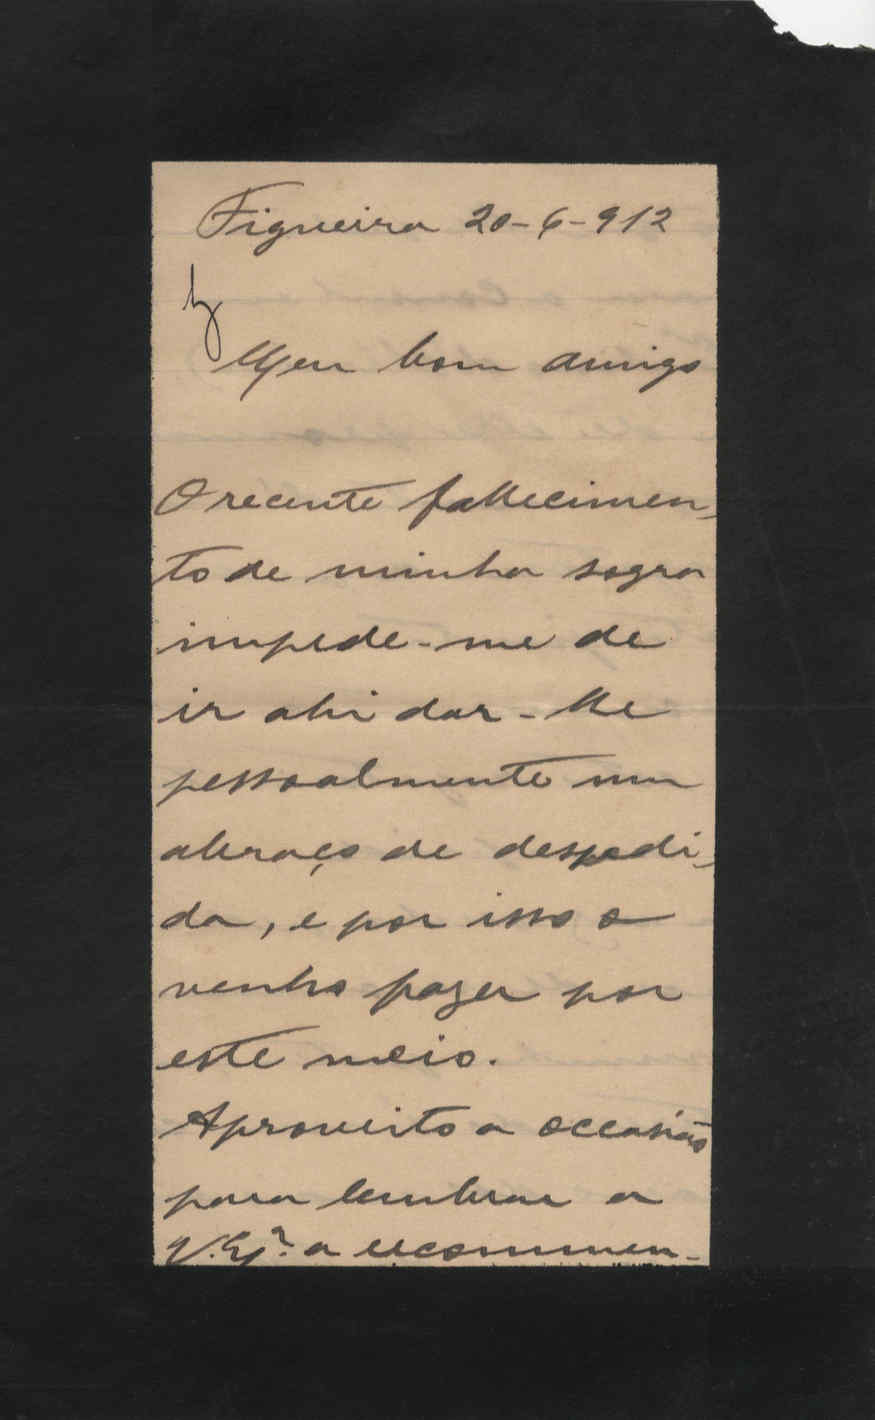 Figueira 20-6-912
Meu bom amigo
O recente fallecimen-
to de minha sogra
impede-me de
ir ahi dar-lhe
pessoalmente um
abraço de despedi-
da, e por isso o
venho fazer por
este meio.
Aproveito a occasião
para lembrar a
V. Ex.ª a recommen-